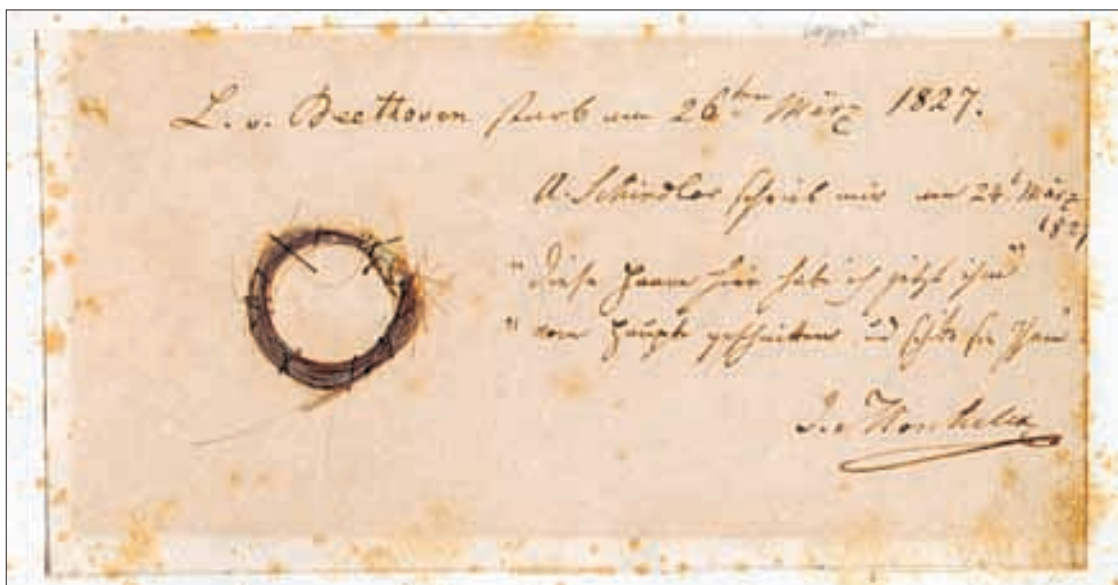 L. v. Beethoven starb am 26ten März 1827.
A. Schindler schrieb mir am 24t März
1827
"diese Haare hier habe ich jetzt ihm"
"vom Haupte geschnitten und schicke sie Ihnen
Moscheles